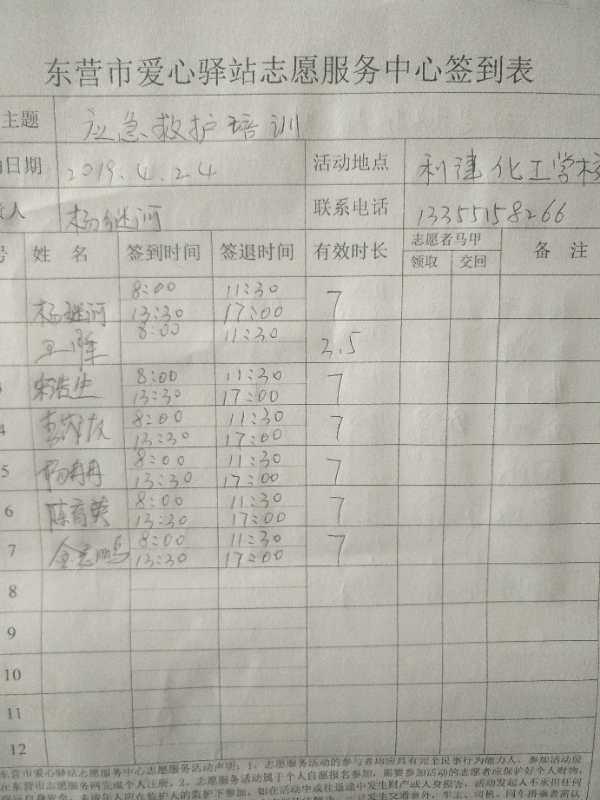 东营市爱心驿站志愿服务中心签到表
主题 应急救护培训
日期 2019.4.24 活动地点 利津化工学校
人 杨继河 联系电话 13355158266
号 姓 名 签到时间 签退时间 有效时长 志愿者马甲 备 注
领取 交回
8:00 11:30
杨继河 13:30 17:00 7
8:00 11:30 3.5
3 8:00 11:30
13:30 17:00 7
4 8:00 11:30
13:30 17:00 7
5 杨冉冉 8:00 11:30
13:30 17:00 7
6 陈育英 8:00 11:30
13:30 17:00 7
7 金志鹏 8:00 11:30
13:30 17:00 7
8
9
10
11
12
东营市爱心驿站志愿服务中心志愿服务活动声明:1、志愿服务活动的参与者均应具有完全民事行为能力人,参加活动应
在东营市志愿服务网完成个人注册。2、志愿服务活动属于个人自愿报名参加,需要参加活动的志愿者应保护好个人财物,